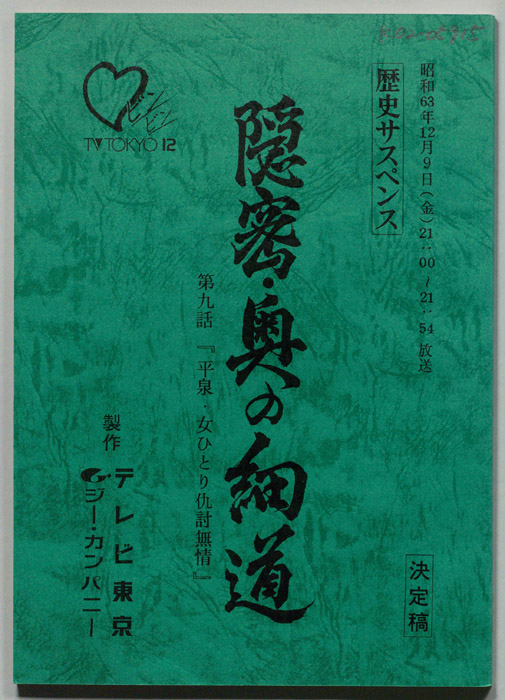 昭和63年12月9日(金)21:00~21:54 放送
歴史サスペンス
隠密・奥の細道
第九話『平泉・女ひとり仇討無情』
決定稿
製作
テレビ東京
ジー・カンパニー
ビンビン
TV TOKYO 12